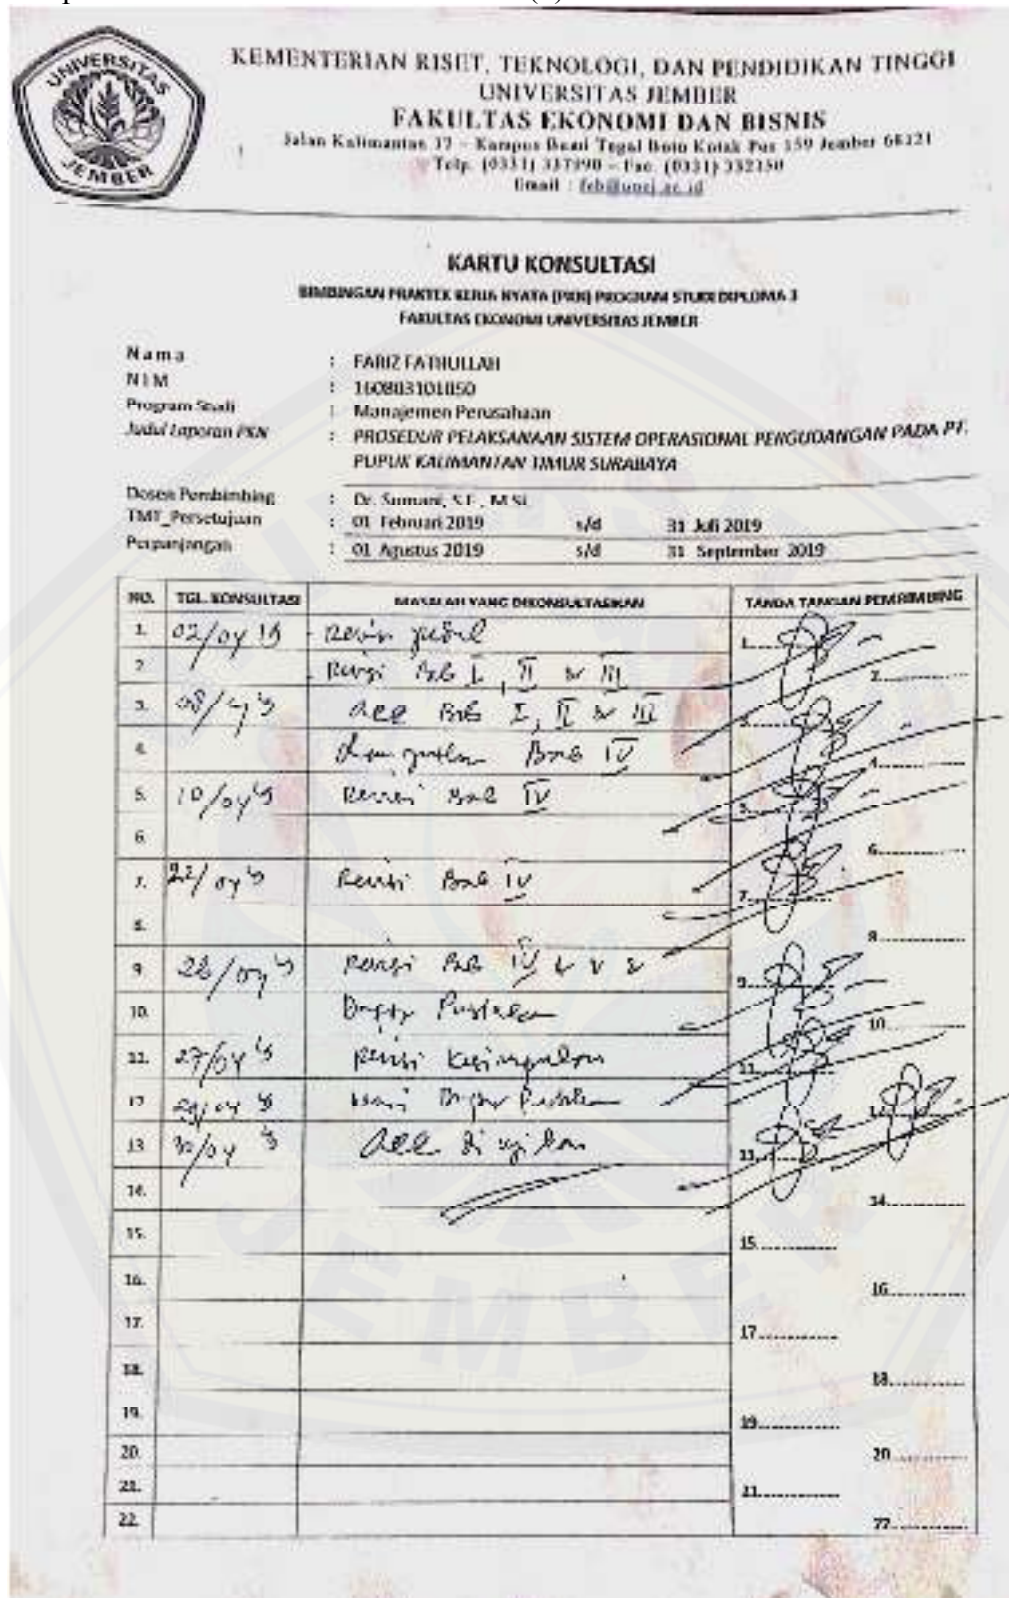 (1)
UNIVERSITAS
JEMBER
KEMENTERIAN RISET, TEKNOLOGI, DAN PENDIDIKAN TINGGI
UNIVERSITAS JEMBER
FAKULTAS EKONOMI DAN BISNIS
Jalan Kalimantan 37 – Kampus Bumi Tegal Boto Kotak Pos 159 Jember 68121
Telp. (0331) 337990 – Fac. (0331) 332150
Email : feb@unej.ac.id
KARTU KONSULTASI
BIMBINGAN PRAKTEK KERJA NYATA (PKN) PROGRAM STUDI DIPLOMA 3
FAKULTAS EKONOMI UNIVERSITAS JEMBER
Nama : FARIZ FATHULLAH
NIM : 160803101050
Program Studi : Manajemen Perusahaan
Judul Laporan PKN : PROSEDUR PELAKSANAAN SISTEM OPERASIONAL PERGUDANGAN PADA PT.
PUPUK KALIMANTAN TIMUR SURABAYA
Dosen Pembimbing : Dr. Sumani, S.E., M.Si.
TMT_Persetujuan : 01 Februari 2019 s/d 31 Juli 2019
Perpanjangan : 01 Agustus 2019 s/d 31 September 2019
NO. TGL. KONSULTASI MASALAH YANG DIKONSULTASIKAN TANDA TANGAN PEMBIMBING
1. 02/04 19 - Revisi judul 1.
2. - Revisi Bab I, II & III 2.
3. 08/4 19 acc Bab I, II & III 3.
4. Bab IV 4.
5. 10/04 19 Revisi Bab IV 5.
6. 6.
7. 22/04 19 Revisi Bab IV 7.
8. 8.
9. 26/04 19 Revisi Bab IV & V & 9.
10. Daftar Pustaka 10.
11. 27/04 19 Revisi Kesimpulan 11.
12. 29/04 19 Revisi Daftar Pustaka 12.
13. 30/04 19 acc di ujikan 13.
14. 14.
15. 15.
16. 16.
17. 17.
18. 18.
19. 19.
20. 20.
21. 21.
22. 22.